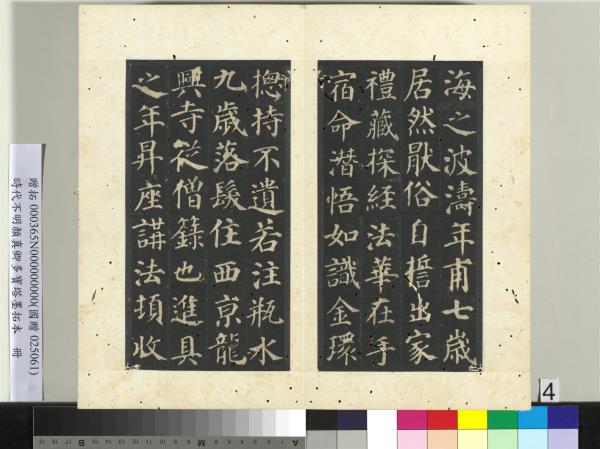 海之波濤年甫七歲
居然猒俗自誓出家
禮藏探經法華在手
宿命潛悟如識金環
揔持不遺若注瓶水
九歲落髮住西京龍
興寺從僧籙也進具
之年昇座講法頓收
贈拓 000365N000000000(國贈 025061)
時代不明顏真卿多寶塔墨拓本 冊
4